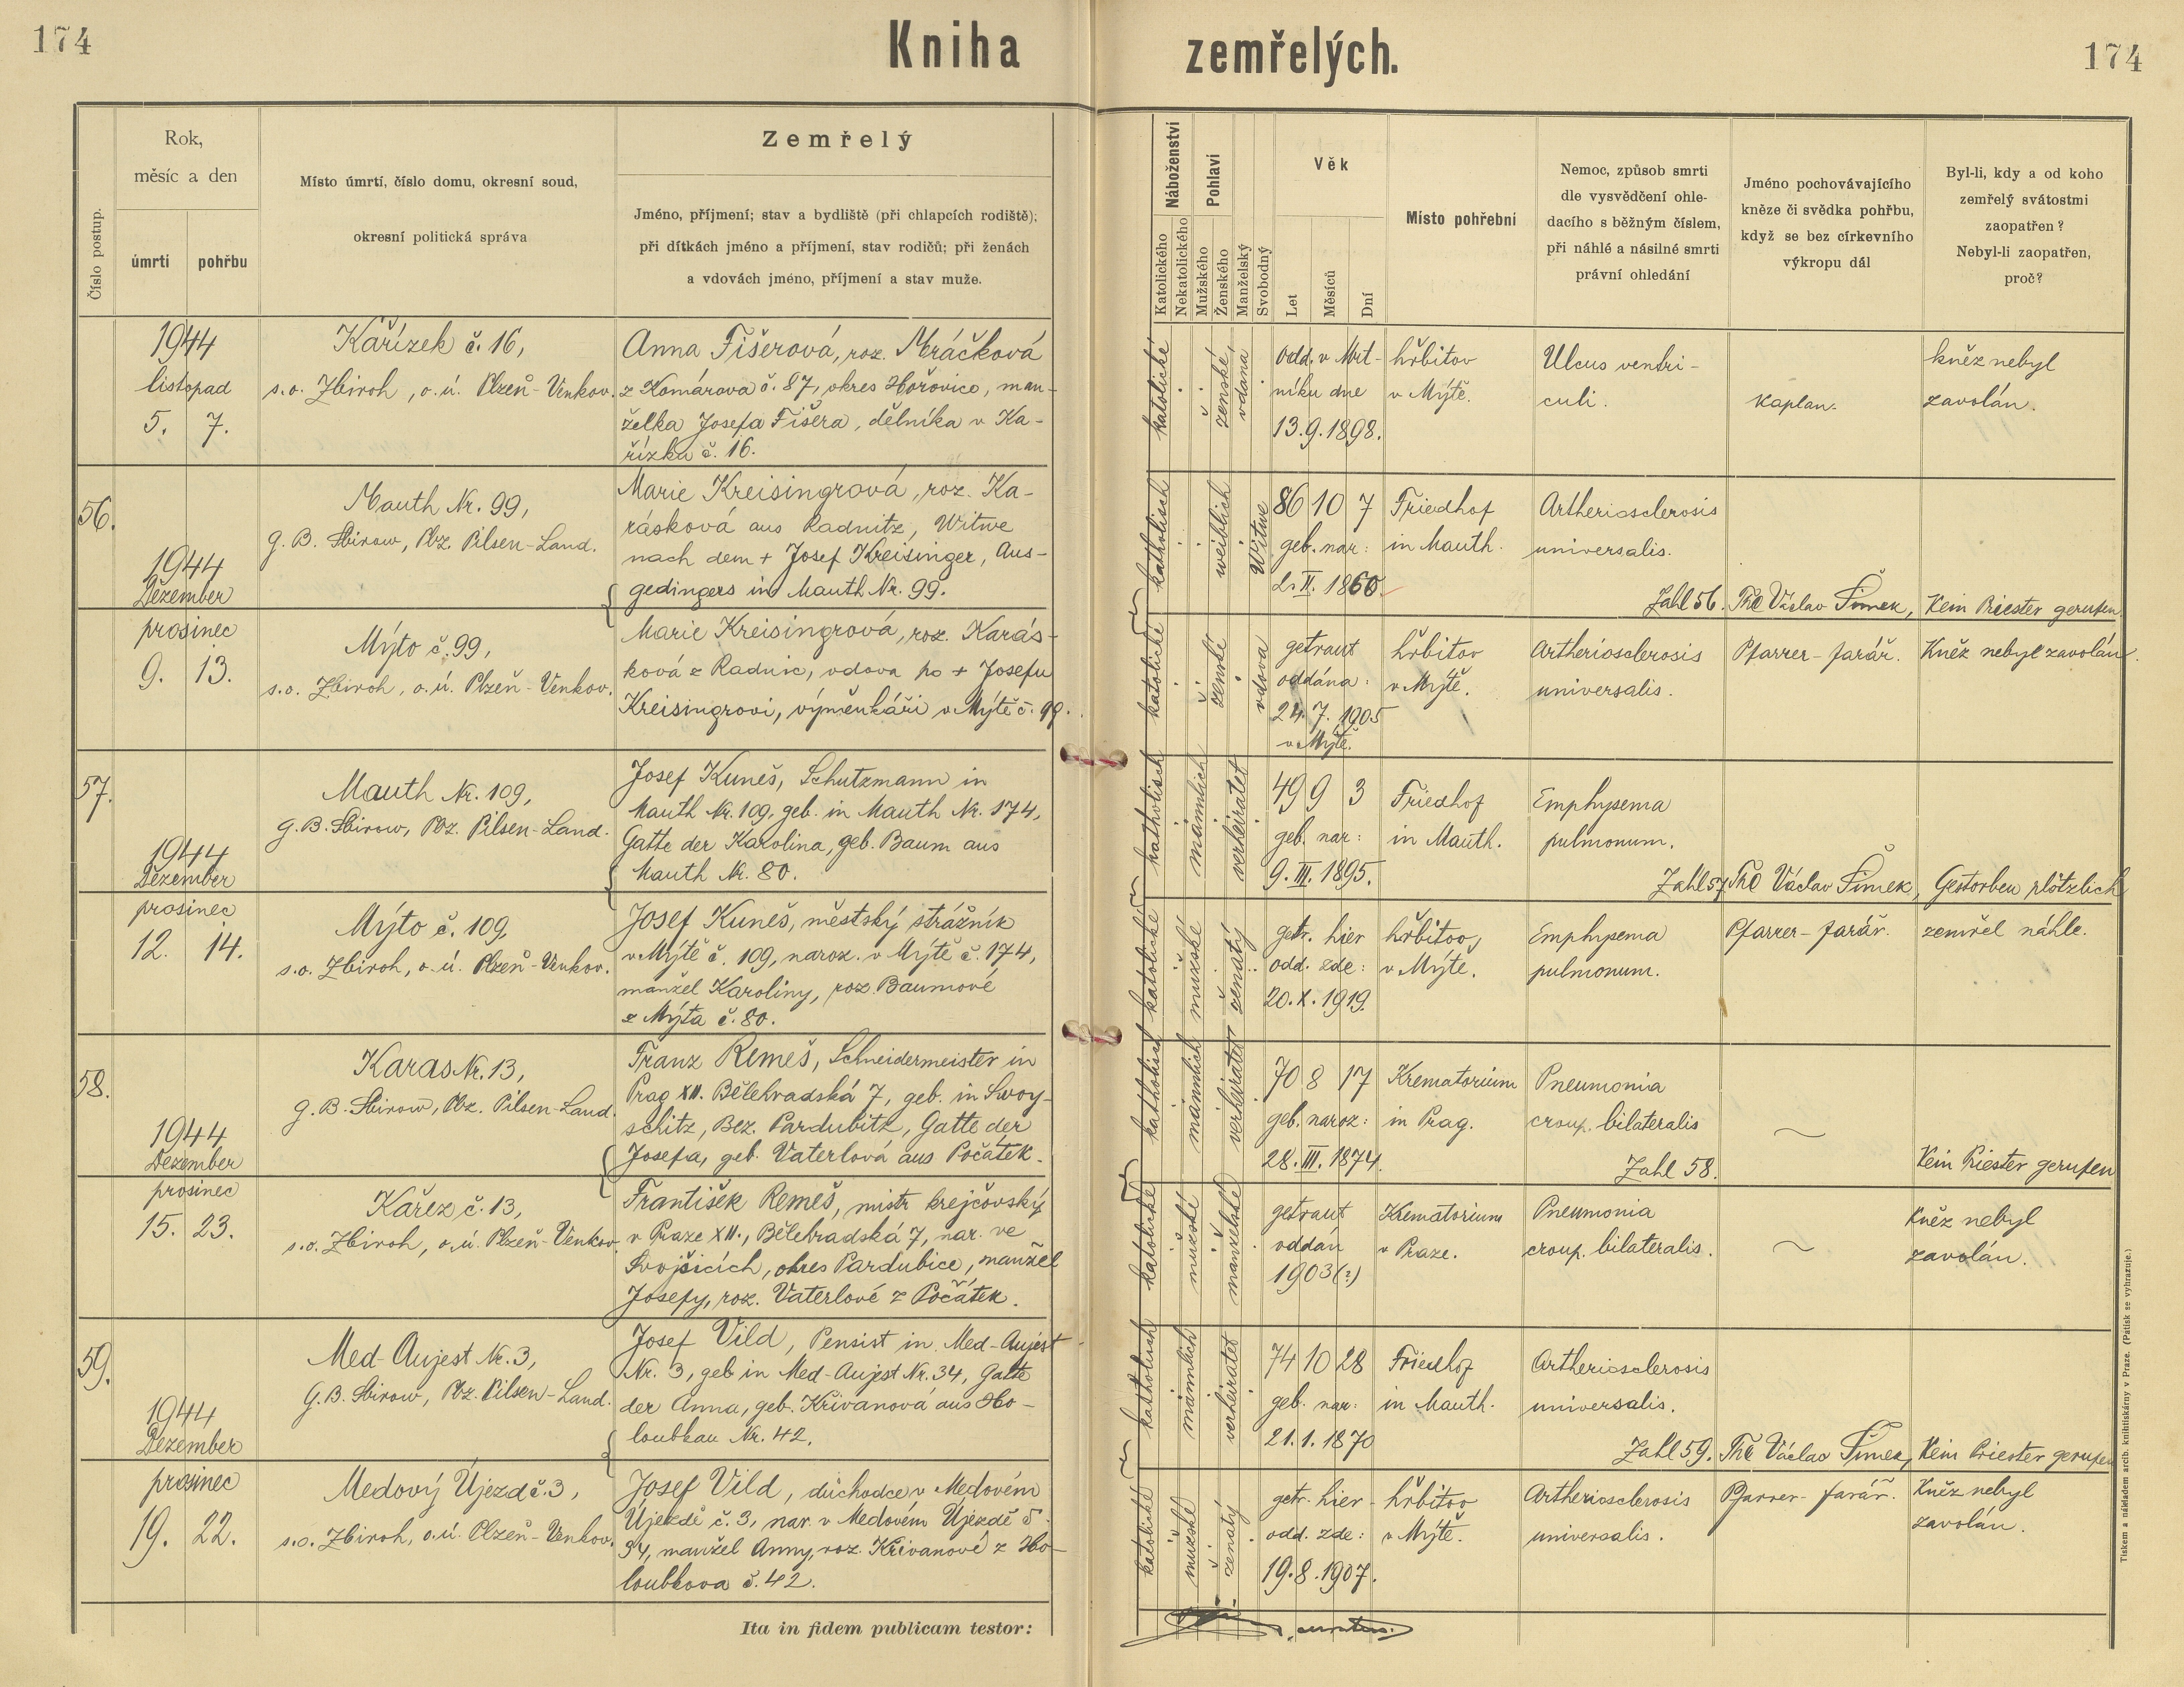 174
Kniha zemřelých.
174
Číslo postup.
Rok,
měsíc a den
úmrtí
pohřbu
Místo úmrtí, číslo domu, okresní soud,
okresní politická správa
Zemřelý
Jméno, příjmení; stav a bydliště (při chlapcích rodiště);
při dítkách jméno a příjmení, stav rodičů; při ženách
a vdovách jméno, příjmení a stav muže.
Náboženství
Katolického
Nekatolického
Pohlaví
Mužského
Ženského
Manželský
Svobodný
Věk
Let
Měsíců
Dní
Místo pohřební
Nemoc, způsob smrti
dle vysvědčení ohle-
dacího s běžným číslem,
při náhlé a násilné smrti
právní ohledání
Jméno pochovávajícího
kněze či svědka pohřbu,
když se bez církevního
výkropu dál
Byl-li, kdy a od koho
zemřelý svátostmi
zaopatřen?
Nebyl-li zaopatřen,
proč?
1944
listopad
5. 7.
Kařízek č. 16,
s.o. Zbiroh, o.ú. Plzeň-Venkov.
Anna Fišerová, roz. Mráčková
z Komárova č. 87, okres Hořovice, man-
želka Josefa Fišera, dělníka v Ka-
řízku č. 16.
katolické
ženské
vdaná
odd. v Mrt-
níku dne
13.9.1898.
hřbitov
v Mýtě.
Ulcus ventri-
culi.
Kaplan.
kněz nebyl
zavolán.
56.
1944
Dezember
Mauth Nr. 99,
G. B. Sbirow, Pbz. Pilsen-Land.
Marie Kreisingrová, roz. Ka-
rásková aus Radnitz, Witwe
nach dem + Josef Kreisinger, Aus-
gedingers in Mauth Nr. 99.
katholisch
weiblich
Witwe
86 10 7
geb. nar:
2. II. 1860.
Friedhof
in Mauth.
Artheriosclerosis
universalis.
Zahl 56.
Václav Šimek,
Kein Priester gerufen
prosinec
9. 13.
Mýto č. 99,
s.o. Zbiroh, o.ú. Plzeň-Venkov.
Marie Kreisingrová, roz. Karás-
ková z Radnic, vdova po + Josefu
Kreisingrovi, výměnkáři v Mýtě č. 99.
katolické
ženské
vdova
getraut
oddána:
24. 7. 1905
v Mýtě.
hřbitov
v Mýtě.
Artheriosclerosis
universalis.
Pfarrer-farář.
Kněz nebyl zavolán.
57.
1944
Dezember
Mauth Nr. 109,
G. B. Sbirow, Pbz. Pilsen-Land.
Josef Kuneš, Schutzmann in
Mauth Nr. 109, geb. in Mauth Nr. 174,
Gatte der Karolina, geb. Baum aus
Mauth Nr. 80.
katholisch
männlich
verheiratet
49 9 3
geb. nar:
9. III. 1895.
Friedhof
in Mauth.
Emphysema
pulmonum.
Zahl 57.
Václav Šimek,
Gestorben plötzlich
prosinec
12. 14.
Mýto č. 109,
s.o. Zbiroh, o.ú. Plzeň-Venkov.
Josef Kuneš, městský strážník
v Mýtě č. 109, naroz. v Mýtě č. 174,
manžel Karoliny, roz. Baumové
z Mýta č. 80.
katolické
mužské
ženatý
getr. hier
odd. zde:
20. X. 1919.
hřbitov,
v Mýtě.
Emphysema
pulmonum.
Pfarrer-farář.
zemřel náhle.
58.
1944
Dezember
Karas Nr. 13,
G. B. Sbirow, Pbz. Pilsen-Land.
Franz Remeš, Schneidermeister in
Prag XII. Bělehradská 7, geb. in Swoy-
schitz, Bez. Pardubitz, Gatte der
Josefa, geb. Vaterlová aus Počátek.
katholisch
männlich
verheiratet
70 8 17
geb. naroz:
28. III. 1874.
Krematorium
in Prag.
Pneumonia
croup. bilateralis
Zahl 58.
Kein Priester gerufen
prosinec
15. 23.
Kařez č. 13,
s.o. Zbiroh, o.ú. Plzeň-Venkov.
František Remeš, mistr krejčovský
v Praze XII., Bělehradská 7, nar. ve
Svojšicích, okres Pardubice, manžel
Josefy, roz. Vaterlové z Počátek.
katolické
mužské
manželské
getraut
oddán
1903(?)
Krematorium
v Praze.
Pneumonia
croup. bilateralis.
Kněz nebyl
zavolán.
59.
1944
Dezember
Med-Aujest Nr. 3,
G. B. Sbirow, Pbz. Pilsen-Land.
Josef Vild, Pensist in Med-Aujest
Nr. 3, geb in Med-Aujest Nr. 34, Gatte
der Anna, geb. Křivanová aus Ho-
loubkau Nr. 42.
katholisch
männlich
verheiratet
74 10 28
geb. nar:
21. 1. 1870
Friedhof
in Mauth.
Artheriosclerosis
universalis.
Zahl 59.
Václav Šimek,
Kein Priester gerufen
prosinec
19. 22.
Medový Újezd č. 3,
s.o. Zbiroh, o.ú. Plzeň-Venkov.
Josef Vild, důchodce v Medovém
Újezdě č. 3, nar. v Medovém Újezdě č.
34, manžel Anny, roz. Křivanové z Ho-
loubkova č. 42.
katolické
mužské
ženatý
getr. hier-
odd. zde:
19. 8. 1907.
hřbitov
v Mýtě.
Artheriosclerosis
universalis.
Pfarrer-farář.
Kněz nebyl
zavolán.
Ita in fidem publicam testor:
Tiskem a nákladem arcib. knihtiskárny v Praze. (Patisk se vyhrazuje.)